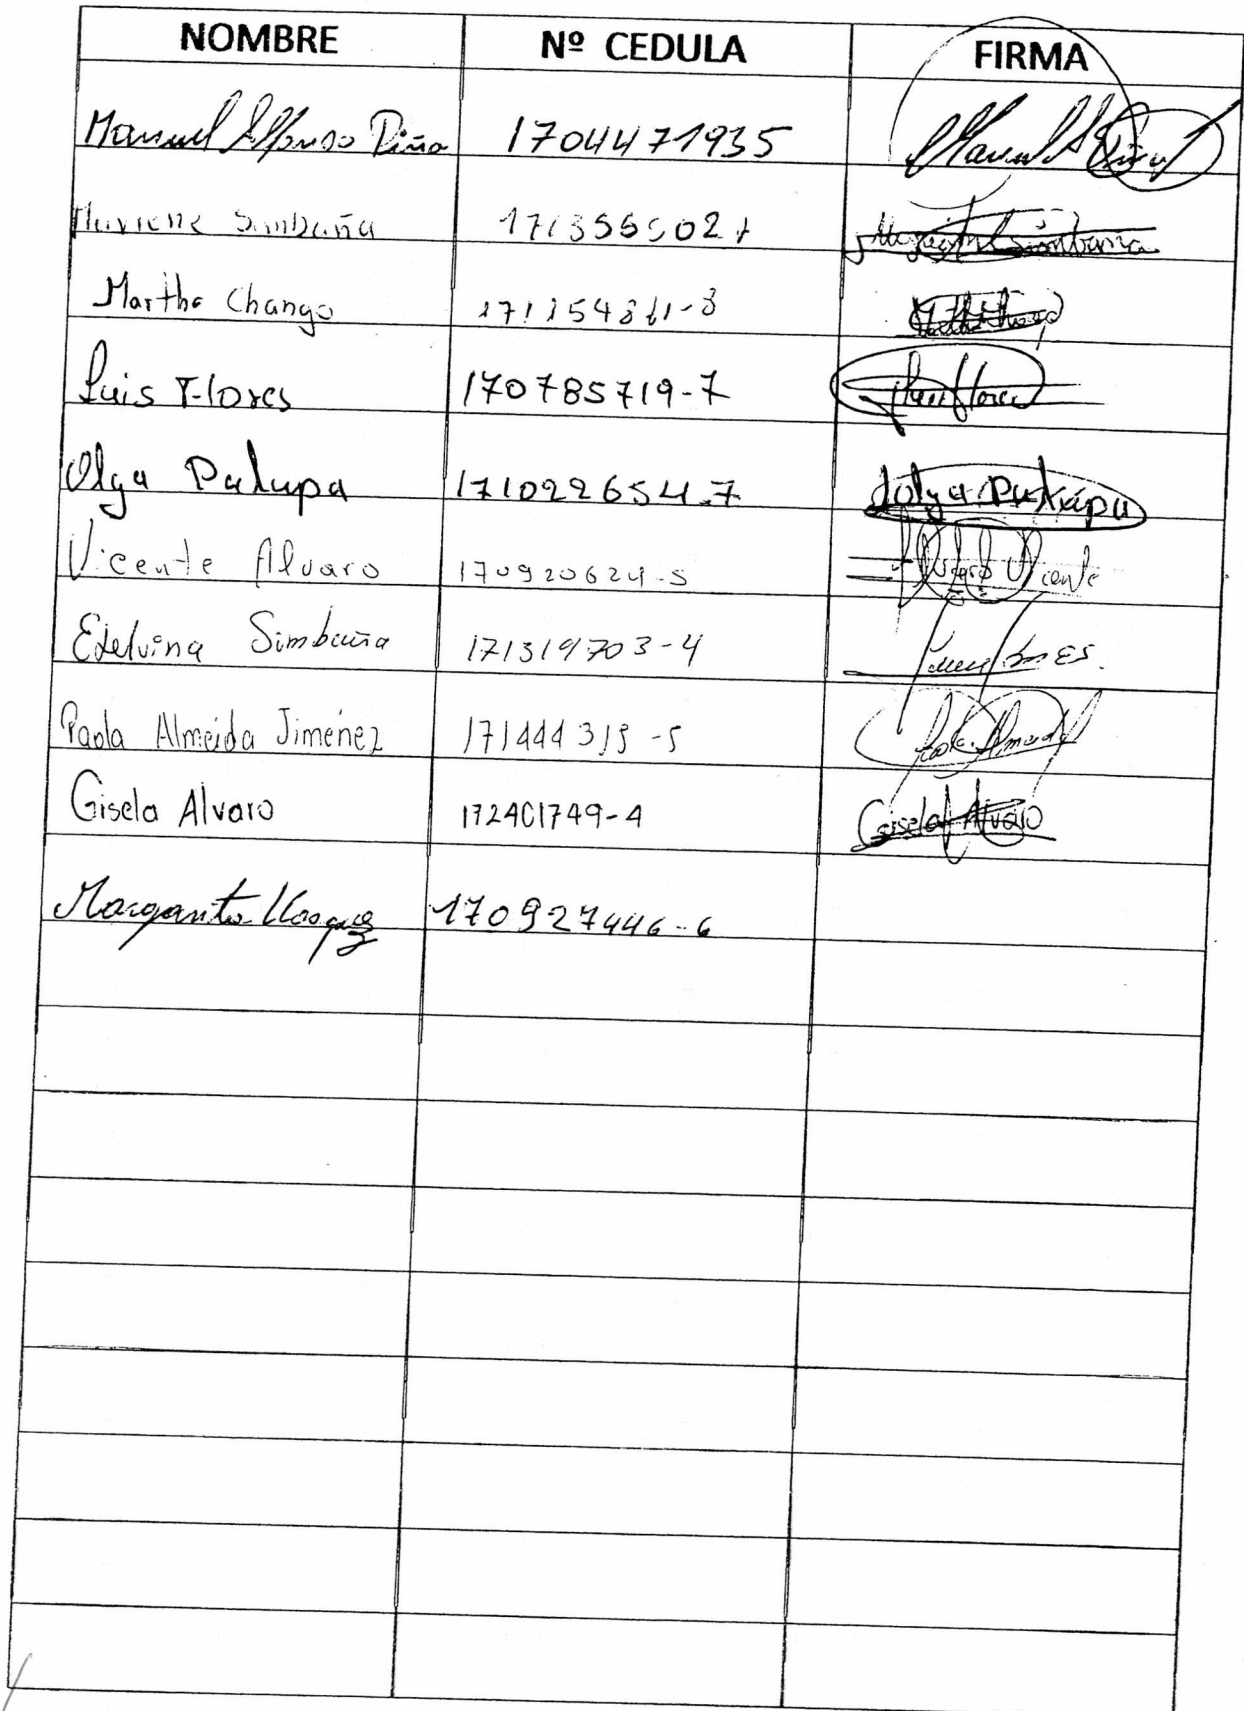 NOMBRE Nº CEDULA FIRMA
Manuel Alfonso Piña 1704471935 Manuel A Piña
Simbaña Simbaña
Martha Chango
Luis Flores 170785719-7 Luis Flores
Olga Pukupa 171022654-7 Olga
Vicente Alvaro 170920624-5 Alvaro Vicente
Edelvina Simbaña 171319703-4
Paola Almeida Jimenez 171444319-5 Paola Almeida
Gisela Alvaro 172401749-4 Gisela Alvaro
Margarita 170927446-6